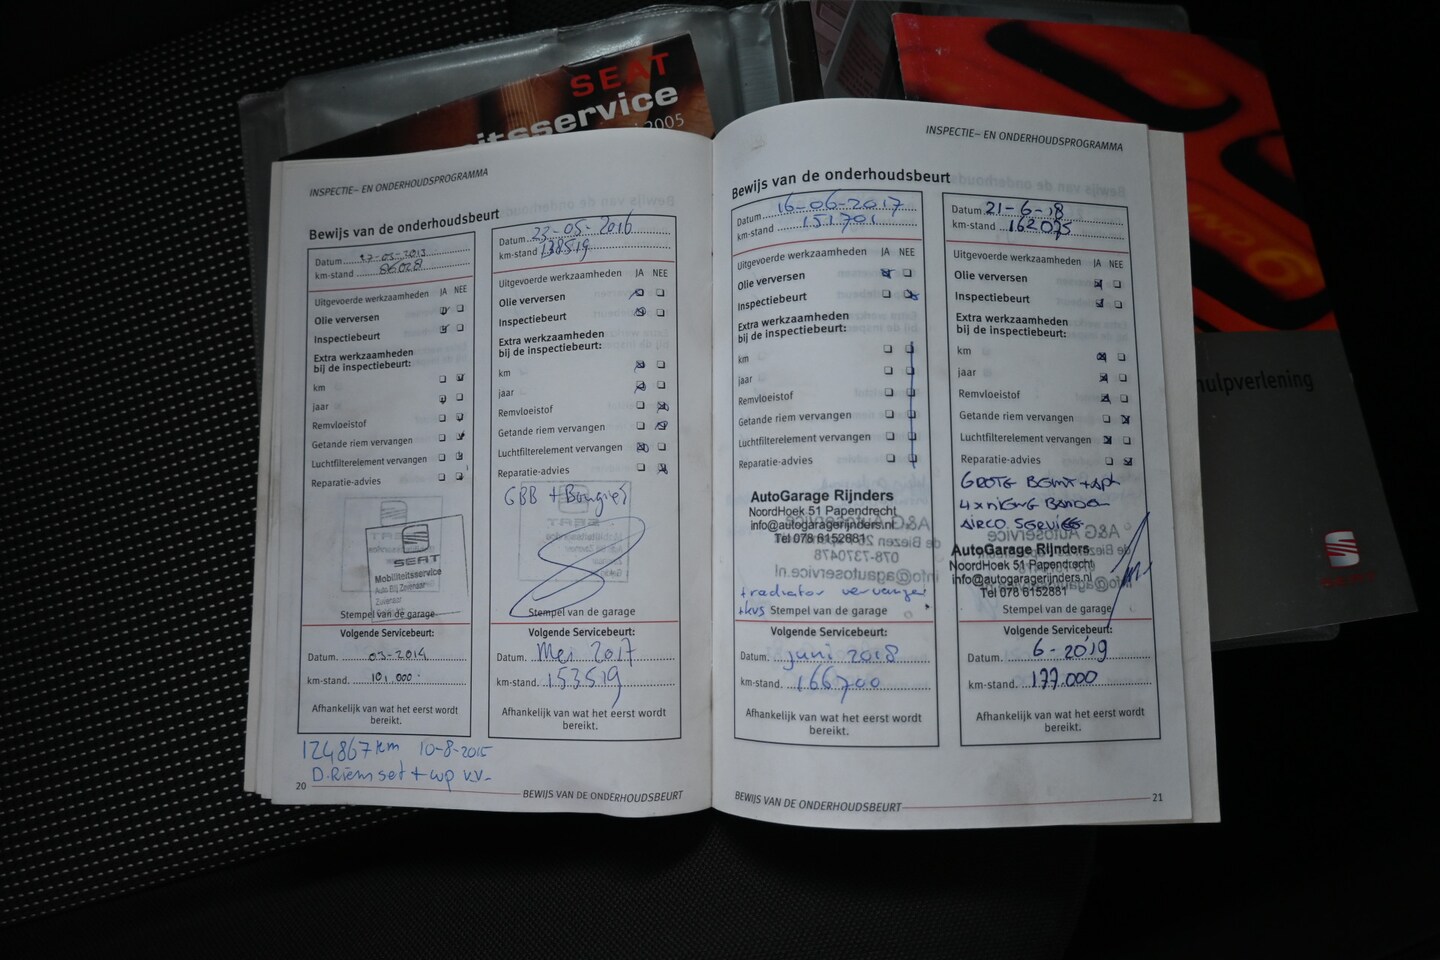 SEAT
itsservice
2005
hulpverlening
INSPECTIE- EN ONDERHOUDSPROGRAMMA
Bewijs van de onderhoudsbeurt
Datum 27-05-2013
km-stand 86028
Uitgevoerde werkzaamheden JA NEE
Olie verversen
Inspectiebeurt
Extra werkzaamheden
bij de inspectiebeurt:
km
jaar
Remvloeistof
Getande riem vervangen
Luchtfilterelement vervangen
Reparatie-advies
SEAT
Mobiliteitsservice
Stempel van de garage
Volgende Servicebeurt:
Datum. 03-2014
km-stand. 101.000
Afhankelijk van wat het eerst wordt
bereikt.
124867 km 10-8-2015
D.Riem set + wp v.v.
20
Datum 23-05-2016
km-stand 138519
Uitgevoerde werkzaamheden JA NEE
Olie verversen
Inspectiebeurt
Extra werkzaamheden
bij de inspectiebeurt:
km
jaar
Remvloeistof
Getande riem vervangen
Luchtfilterelement vervangen
Reparatie-advies
GBB + Bougies
Stempel van de garage
Volgende Servicebeurt:
Datum. Mei 2017
km-stand. 153519
Afhankelijk van wat het eerst wordt
bereikt.
BEWIJS VAN DE ONDERHOUDSBEURT
INSPECTIE- EN ONDERHOUDSPROGRAMMA
Bewijs van de onderhoudsbeurt
Datum 16-06-2017
km-stand 151701
Uitgevoerde werkzaamheden JA NEE
Olie verversen
Inspectiebeurt
Extra werkzaamheden
bij de inspectiebeurt:
km
jaar
Remvloeistof
Getande riem vervangen
Luchtfilterelement vervangen
Reparatie-advies
AutoGarage Rijnders
NoordHoek 51 Papendrecht
info@autogaragerijnders.nl
Tel 078 6152881
+radiator vervangen
+kvs Stempel van de garage
Volgende Servicebeurt:
Datum. juni 2018
km-stand. 166700
Afhankelijk van wat het eerst wordt
bereikt.
Datum 21-6-18
km-stand 162075
Uitgevoerde werkzaamheden JA NEE
Olie verversen
Inspectiebeurt
Extra werkzaamheden
bij de inspectiebeurt:
km
jaar
Remvloeistof
Getande riem vervangen
Luchtfilterelement vervangen
Reparatie-advies
GROTE BEURT + apk
4x nieuwe Banden
AIRCO SERVICE
AutoGarage Rijnders
NoordHoek 51 Papendrecht
info@autogaragerijnders.nl
Tel 078 6152881
Stempel van de garage
Volgende Servicebeurt:
Datum. 6-2019
km-stand. 177.000
Afhankelijk van wat het eerst wordt
bereikt.
BEWIJS VAN DE ONDERHOUDSBEURT
21